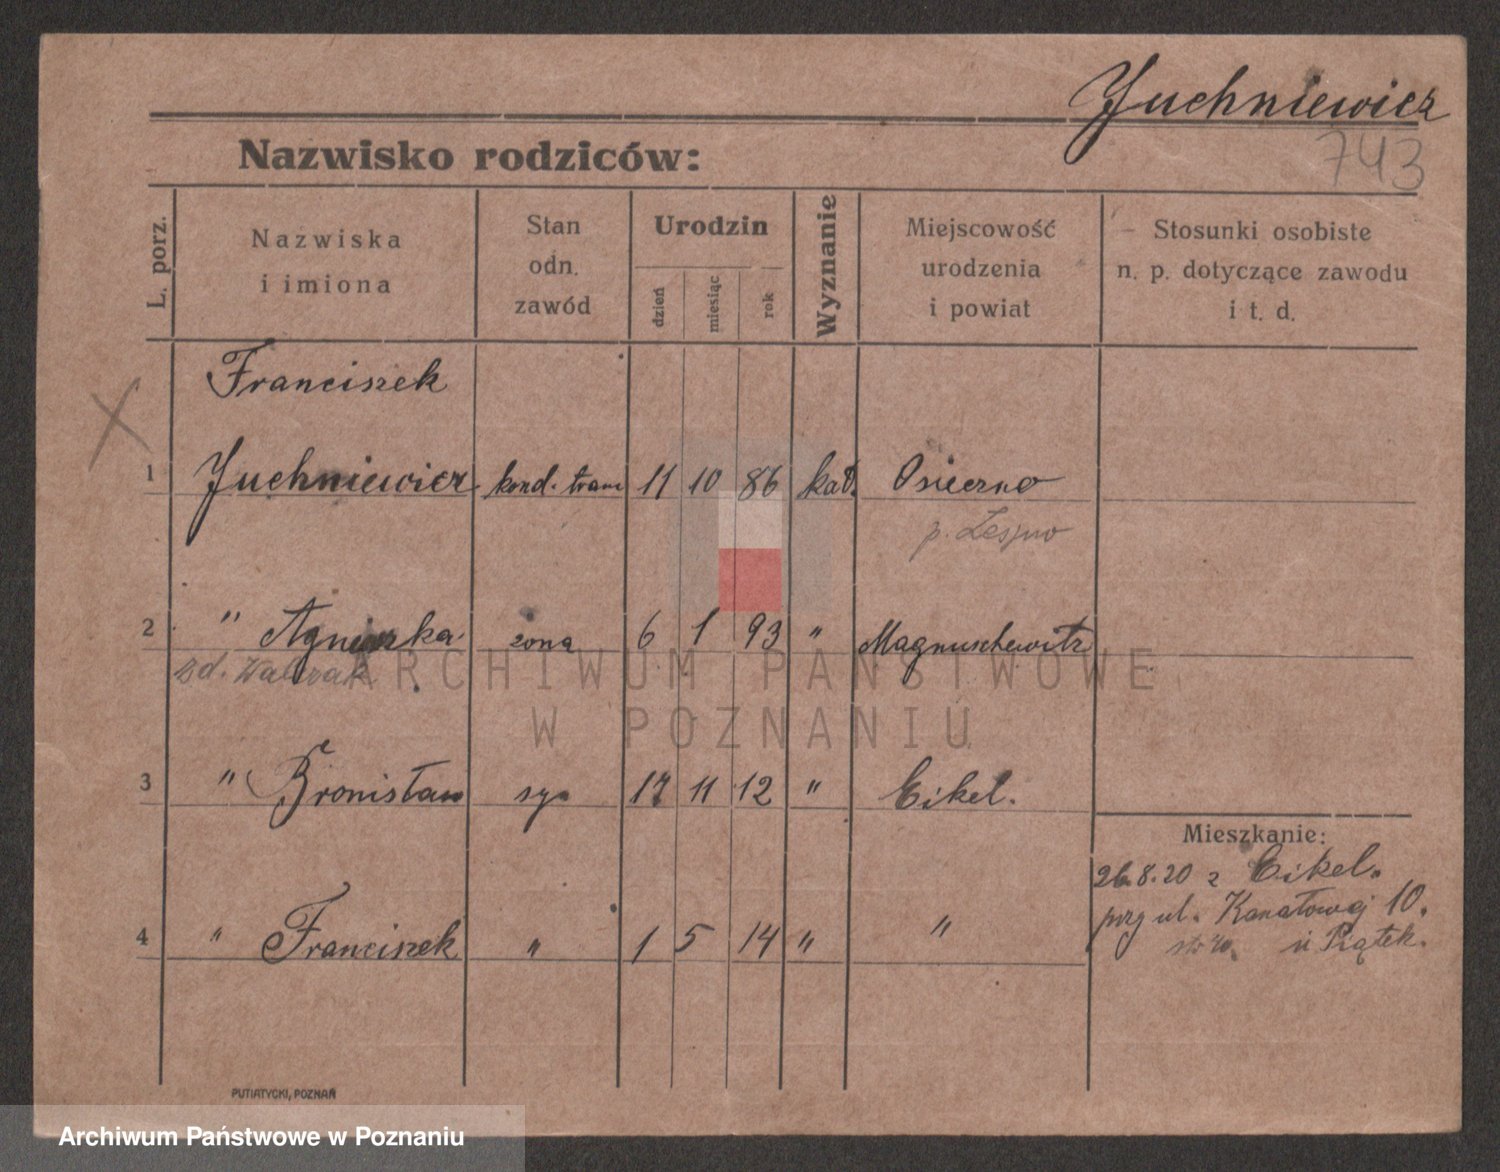 Juchniewicz
743
Nazwisko rodziców:
L. porz.
Nazwiska
i imiona
Stan
odn.
zawód
Urodzin
dzień
miesiąc
rok
Wyznanie
Miejscowość
urodzenia
i powiat
Stosunki osobiste
n. p. dotyczące zawodu
i t. d.
Franciszek
1 Juchniewicz kond. tram 11 10 86 kat. Osieczno
p. Leszno
2 " Agnieszka żona 6 1 93 " Magnuschewitz
zd. Walczak
3 " Bronisław syn 17 11 12 " Eikel.
Mieszkanie:
26.8.20 z Eikel.
przy ul. Kanałowej 10.
u Piątek.
4 " Franciszek " 1 5 14 " "
PUTIATYCKI, POZNAŃ
ARCHIWUM PAŃSTWOWE
W POZNANIU
Archiwum Państwowe w Poznaniu